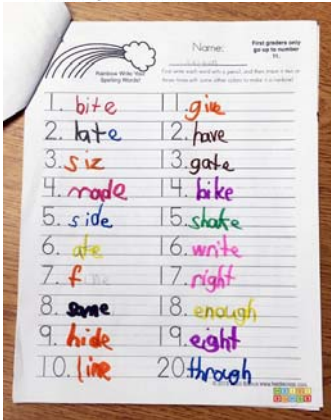 Name:
First graders only
go up to number
11.
Rainbow Write Your
Spelling Words!
First write each word with a pencil, and then trace it two or
three times with some other colors to make it a rainbow!
1. bite
2. late
3. siz
4. made
5. side
6. ate
7. f
8. same
9. hide
10. line
11. give
12. have
13. gate
14. bike
15. shake
16. write
17. right
18. enough
19. eight
20. through